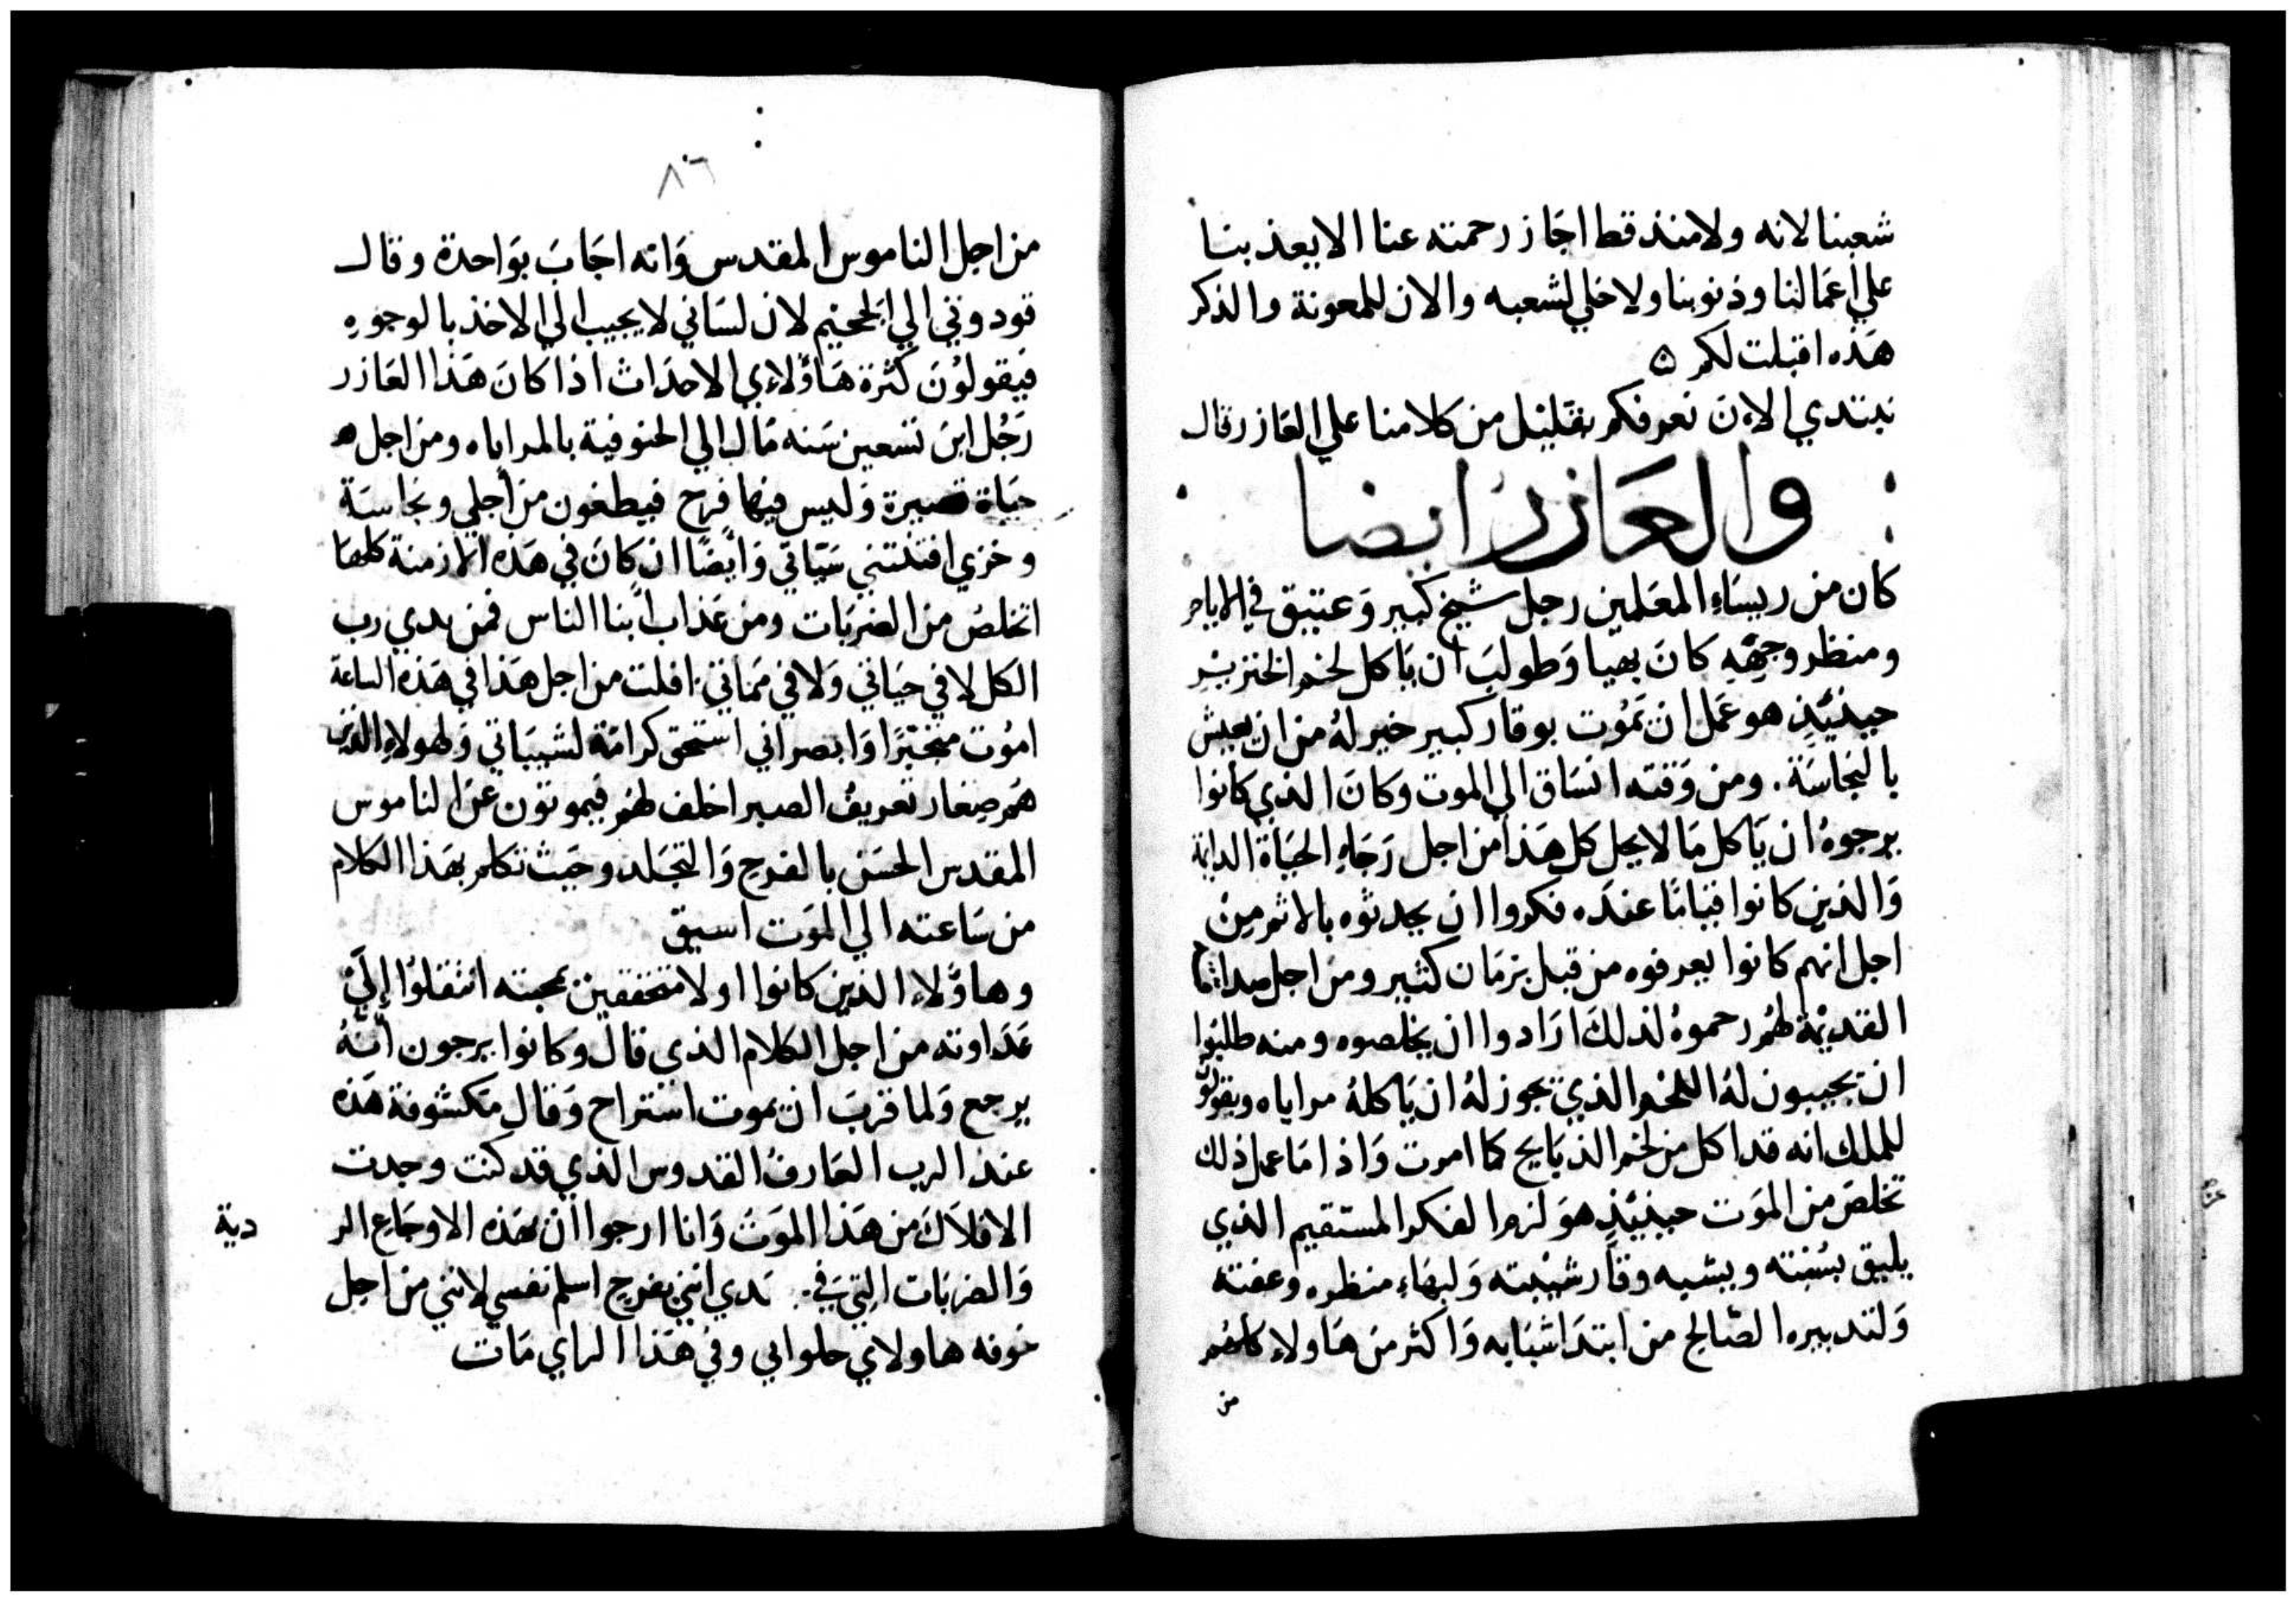 شعبنا لانه ولا منذ قط اجَاز رحمته عنا الا يعذبنا
علي اعمَالنا وذنوبنا ولا خلي لشعبه والان للمعونة والذكر
هَذه اقبلت لكم ۞
نبتدي الاۤن نعرفكم بقليل من كلامنا علي العَازر قال
والعَازر ايضا
كان من ريسَاءِ المعَلمين رجل شيخ كبير وَعتيق في الايام
ومنظر وجهَهِ كانَ بهيا وَطولبَ ان يَاكل لحم الخنزير
حينئِذٍ هو عَمل ان يَمُوت بوقار كبير خير لهُ من ان يعيش
بالنجاسَة. ومن وَقته انسَاق الي الموت وكانَ الذي كانوا
يرجوهُ ان يَاكل مَا لا يحل كل هَذا من اجل رَجَاءِ الحيَاة الدايمة
وَالذين كانوا قيَامًا عندَه فكروا ان يحدثوه بالاثم مِنْ
اجل انهم كانوا يعرفوه من قبل بزمَان كثير ومن اجل
القديمَة لهُم رحموهُ لذلكَ ارَادوا ان يخلصوه ومنه طلبوا
ان يجيبون لهُ اللحم الذي يجوز لهُ ان يَاكلهُ مراياه ويقولون
للملك انه قد اكل من لحم الذبَايح كما امرت وَاذا مَا عمل ذلك
تخلصَ من الموَت حينئِذٍ هوَ لزم الفكر المستقيم الذي
يليق بسُنته ويشبه وقَار شيْبته وَلبهَاءِ منظره وعفته
وَلتدبيره الصَالح من ابتدَا شبَابه وَاكثر من هَاولاء كلهم
من
٨٦
من اجل الناموس المقدس وَانه اجَابَ بوَاحدة وقال
قودوني الي الجحيم لان لسَاني لا يجيب الي الاخذ بالوجوهِ
فيَقولوُنَ كثرة هَاؤلاءي الاحدَاث اذا كانَ هَذا العَازر
رَجُل ابنَ تسعين سَنه مَال الي الحنوفية بالمراياه ومن اجل
حيَاة قصيرة وَليس فيهَا فرح فيطغون من اجلي ونجاسَة
وخزي افتنتني شيَباتي وَايْضًا ان كانَ في هَذه الازمنة كلهَا
اتخلصُ من الضربَات ومن عَذاب ابنا الناس فمن يدي رب
الكل لا في حيَاتي وَلا في ممَاتي افلت من اجل هَذا في هَذه الساعة
امُوت متخيرًا وَابصر اني استحق كرامَة لشيبَاتي وَلهولاءِ الذين
هَم صِغار تعريفُ الصبر اخلف لهم فيموتون عَن الناموس
المقدس الحسَن بالفرح وَالتجَلد وحيَث تكلم بهَذا الكلام
من سَاعته الي الموَت اسيق
وهاوَلاءِ الذين كانوا اولا متخففين بمحبته انتقلوا إلَيْ
عَدَاوته من اجل الكلام الذي قال وكانوا يرجون انهُ
يرجع وَلما قربَ ان يموت استراح وَقال مَكشوفة هَذه
عند الرب العَارفُ القدوس الذي قد كنت وجدت
الافلاَكَ من هَذا الموَت وَانا ارجوا ان بهَذه الاوجَاع الر
دية
وَالضربَات التيَ في. يَدي انني بفرح اسلم نفسي لانني من اجل
خوفه هاولاي حلوا بي وفي هَذا الراي مَات